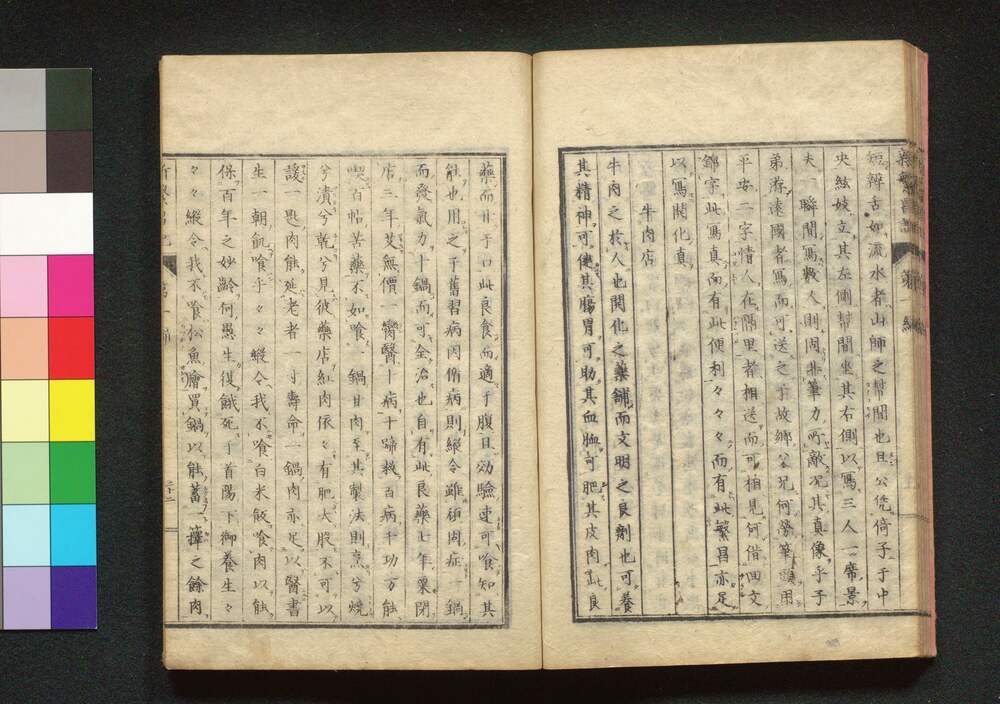 短辯舌如流水者山師之幇間也且公凭倚子于中
央絃妓立其左側幇間坐其右側以寫三人一席景
夫一瞬間寫数人則固非筆力所敵况其真像乎子
弟游遠國者寫而可送之于故郷父兄何勞筆頭用
平安二字情人在隔里者相送而可相見何借回文
錦字此寫真而有此便利々々々而有此繁昌亦足
以寫開化真
牛肉店
牛肉之於人也開化之藥舗而文明之良劑也可養
其精神可健其腸胃可助其血脉可肥其皮肉此良
藥而甘于口此良食而適于腹且効驗速可喰知其
能也用之于舊習病因循病則縱令雖頑固症一鍋
而發氣力十鍋而可全治也自有此良藥七年粟閉
店三年艾無價一臠醫一病十蹄救百病千功万能
喫百帖苦藥不如喰一鍋甘肉至其製法則烹兮燒
兮漬兮乾兮見彼藥店紅肉依々有肥大股不可以
諼一匙肉能延老者一寸壽命一鍋肉亦足以醫書
生一朝飢喰乎々々縱令我不喰白米飯喰肉以能
保百年之妙齡何愚生復餓死于首陽下御養生々
々々縱令我不喰松魚膾買鍋以能蓄一擇之餘肉
第一編
二十二